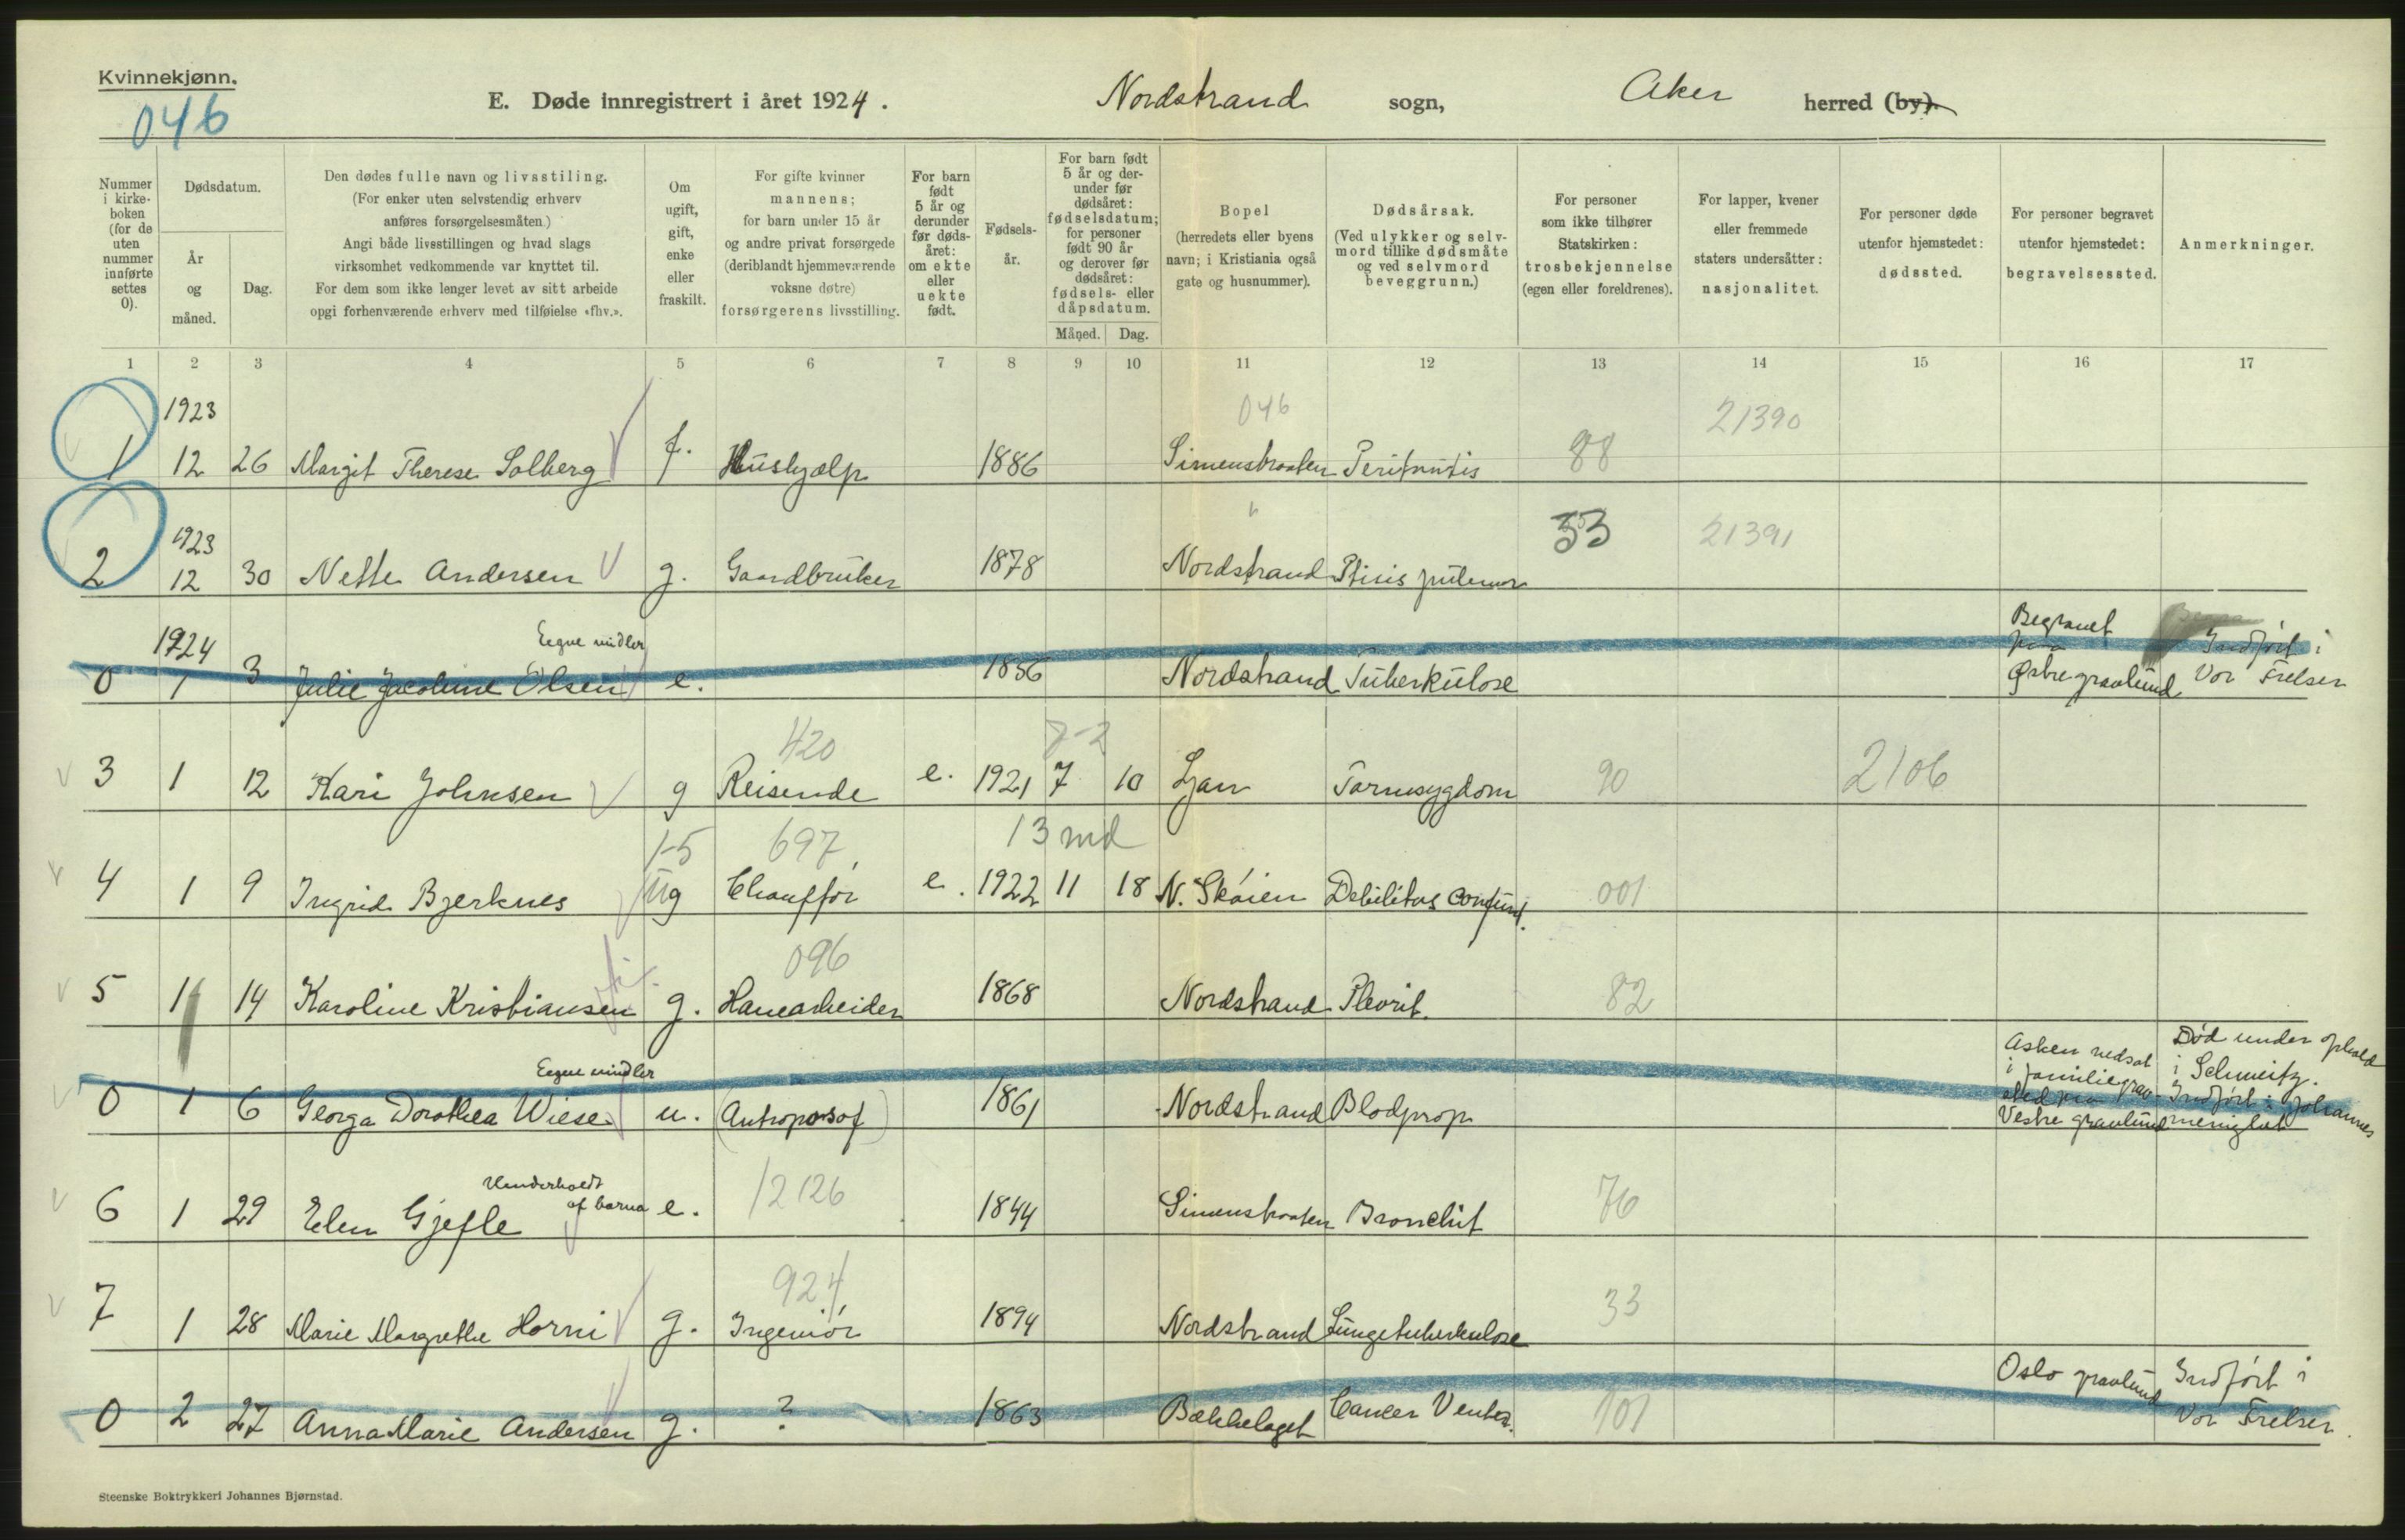 Kvinnekjønn.
046
E. Døde innregistrert i året 1924. Nordstrand sogn, Aker herred (by).
Nummer i kirkeboken (for de uten nummer innførte settes 0).
Dødsdatum.
År og måned.
Dag.
Den dødes fulle navn og livsstiling.
(For enker uten selvstendig erhverv
anføres forsørgelsesmåten.)
Angi både livsstillingen og hvad slags
virksomhet vedkommende var knyttet til.
For dem som ikke lenger levet av sitt arbeide
opgi forhenværende erhverv med tilføielse «fhv.».
Om ugift, gift, enke eller fraskilt.
For gifte kvinner
mannens;
for barn under 15 år
og andre privat forsørgede
(deriblandt hjemmeværende
voksne døtre)
forsørgerens livsstilling.
For barn født 5 år og derunder før dødsåret: om ekte eller uekte født.
Fødselsår.
For barn født 5 år og derunder før dødsåret: fødselsdatum; for personer født 90 år og derover før dødsåret: fødsels- eller dåpsdatum.
Måned. Dag.
Bopel
(herredets eller byens
navn; i Kristiania også
gate og husnummer).
Dødsårsak.
(Ved ulykker og selvmord tillike dødsmåte
og ved selvmord
beveggrunn.)
For personer
som ikke tilhører
Statskirken:
trosbekjennelse
(egen eller foreldrenes).
For lapper, kvener
eller fremmede
staters undersåtter:
nasjonalitet.
For personer døde
utenfor hjemstedet:
dødssted.
For personer begravet
utenfor hjemstedet:
begravelsessted.
Anmerkninger.
1 2 3 4 5 6 7 8 9 10 11 12 13 14 15 16 17
1923 046 21390
1 12 26 Margit Therese Solberg f. Hushjælp 1886 Simenstraaten Peritonitis 88
1923 " 33 21391
2 12 30 Nette Andersen g. Gaardbruker 1878 Nordstrand Ptisis pulmon
1924 Eegne midler Begravet
0 1 3 Julie Jacobine Olsen e. 1856 Nordstrand Tuberkulose paa Østre gravlund Indført i Vor Frelser
420 7-2
3 1 12 Kari Johnsen g Reisende e. 1921 7 10 Ljan Tarmsygdom 90 2106
1-5 697 13 md
4 1 9 Ingrid Bjerknes ug Chauffør e. 1922 11 18 N. Skøien Debilitas congenit. 001
096
5 1 14 Karoline Kristiansen g. Havearbeider 1868 Nordstrand Plevrit. 82
Eegne midler
0 1 6 Georga Dorothea Wiese u. (Antroposof) 1861 Nordstrand Blodprop Asken nedsat i familiegravsted paa Vestre gravlund Død under ophold i Schweitz. Indført i Johannes menighet
Underholdt
af barna
6 1 29 Elen Gjefle e. 12126 1844 Simenstraaten Bronchit 76
924
7 1 28 Marie Margrethe Horni g. Ingeniør 1894 Nordstrand Lungetuberkulose 33
0 2 27 Anna Marie Andersen g. ? 1863 Bækkelaget Cancer Ventr. 101 Oslo gravlund Indført i Vor Frelser.
Steenske Boktrykkeri Johannes Bjørnstad.